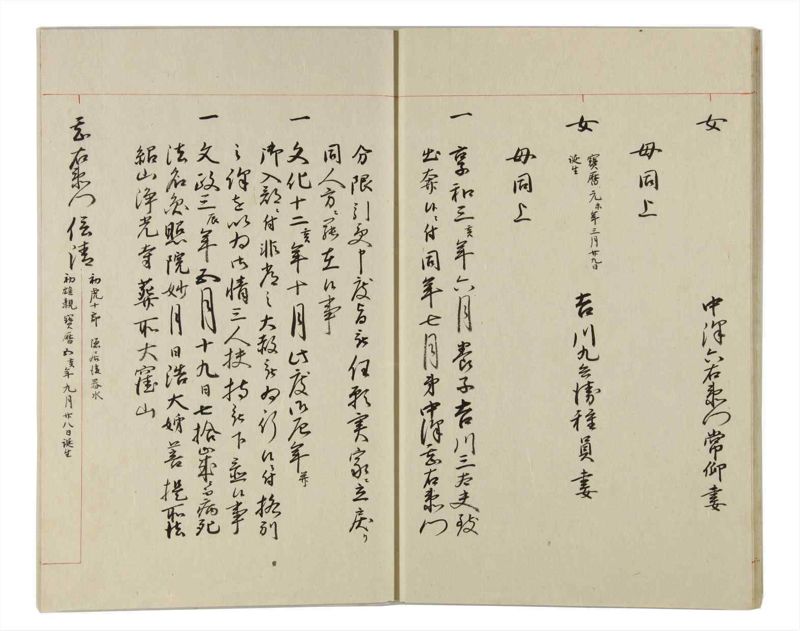 女
中澤六右衛門常仰妻
母同上
女
寶暦元未年三月廿九日
誕生
吉川九兵衛種員妻
母同上
一 享和三亥年六月養子吉川三太夫致
出奔候ニ付同年七月弟中澤忠右衛門
分限引更申度旨
任願実家ニ立戻り
同人方ニ罷在候事
一 文化十二亥年十月此度御厄年并
御入部ニ付非常之大赦被為行候ニ付格別
之譯を以為御情三人扶持被下置候事
一 文政三辰年五月十九日七拾歳ニ而病死
法名
照院妙月日浩大姉菩提所
山浄光寺葬所大窪山
忠右衛門 信清
初虎十郎 隠居後
水
初
親寶暦五亥年九月廿八日誕生